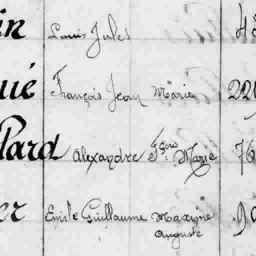 in Louis Jules 48
ué François Jean Marie 220
lard Alexandre Fçois Marie 76
er Emile Guillaume Maxime
Auguste